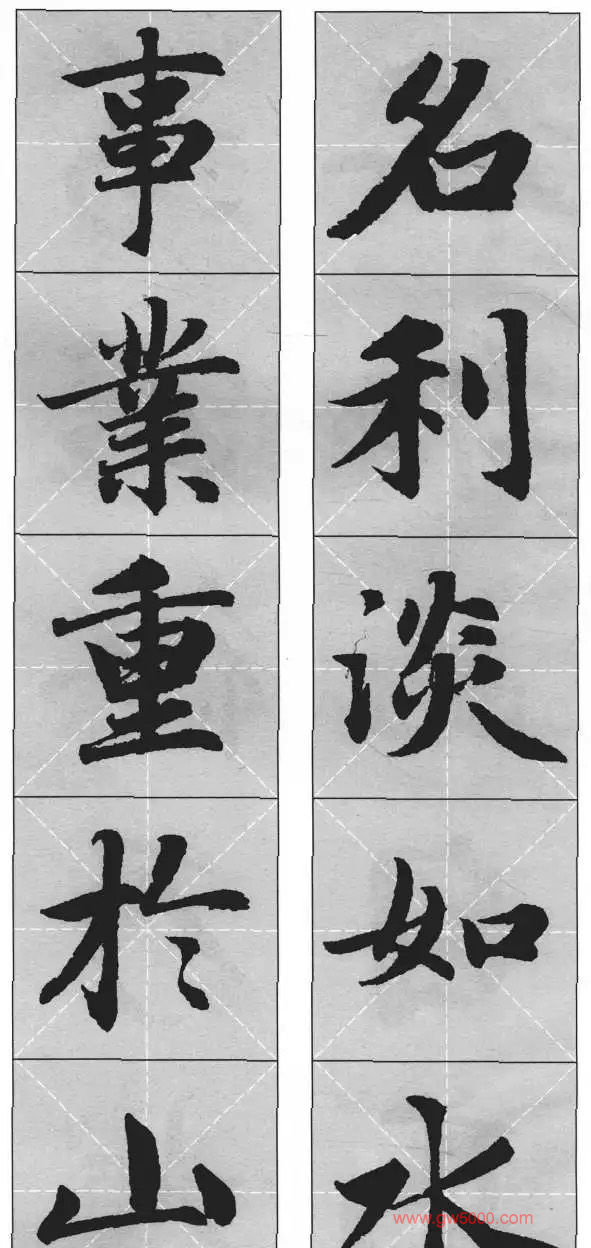 名利淡如水
事業重於山
www.gw5000.com